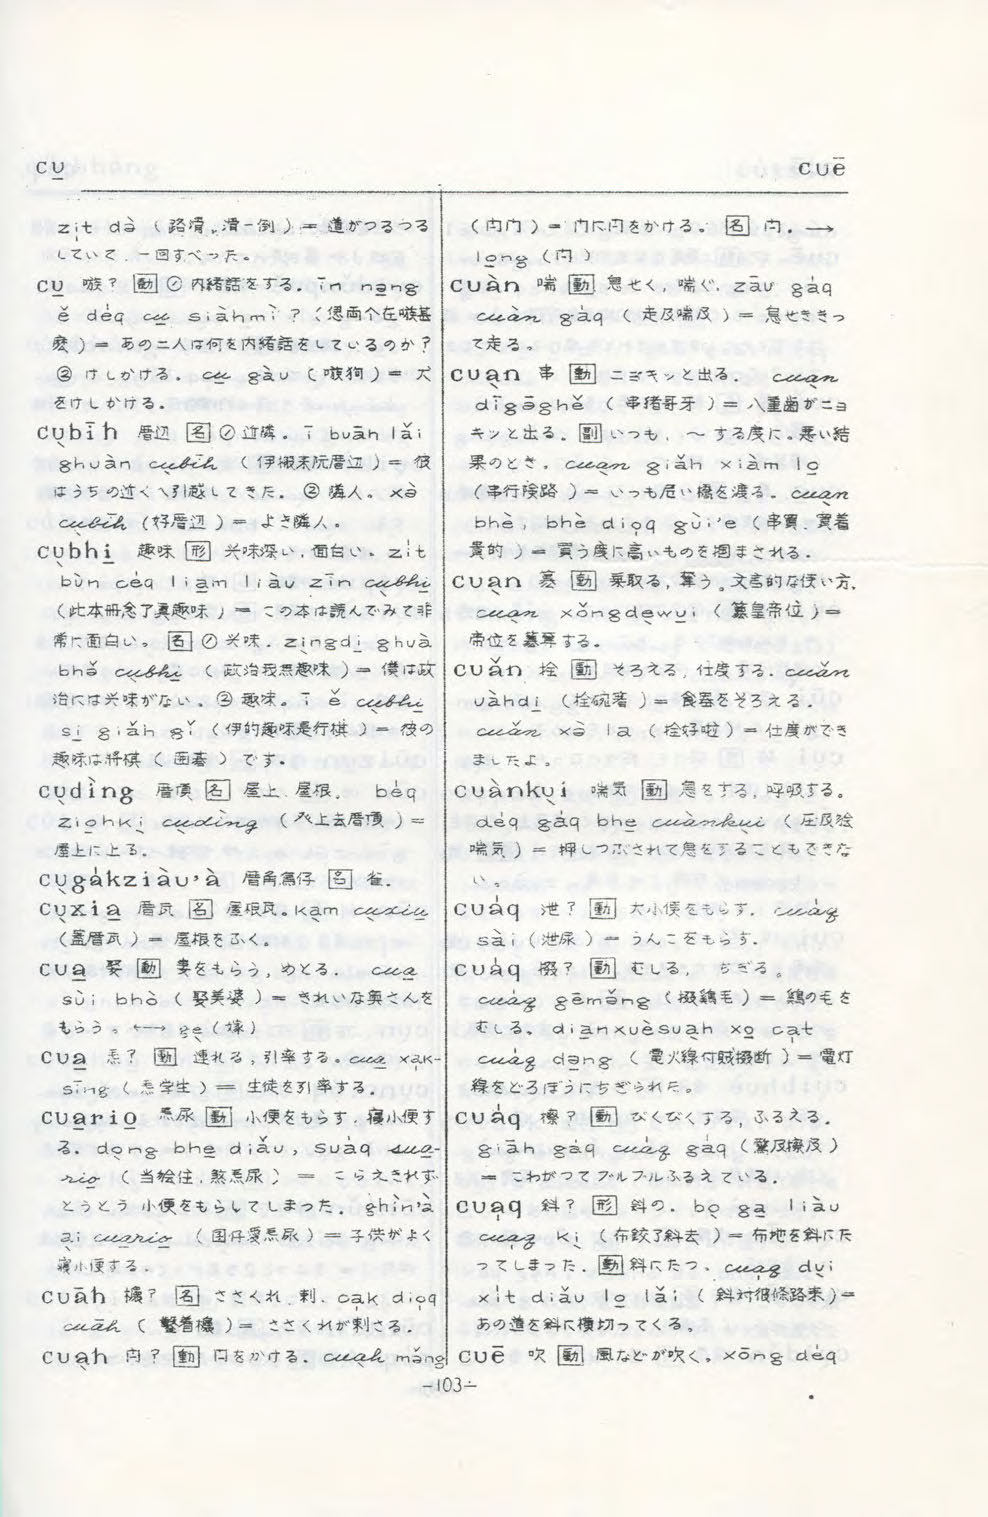 cu̱
cuē
zi̍t dà (路滑,滑一倒) = 道がつるつる
していて 一回すべった。
cu̱ 嗾? [動] ① 内緒話をする. īn nạng
ě déq cu̱ siàhmì ? (偲両个在嗾甚
麼) = あの二人は何を内緒話をしているのか?
② けしかける. cu̱ gàu (嗾狗) = 犬
をけしかける.
cụbīh 厝辺 [名] ① 近隣. ī buāh lǎi
ghuàn cụbīh (伊搬来阮厝辺) = 彼
はうちの近くへ引越してきた. ② 隣人. xà
cụbīh (好厝辺) = よき隣人。
cụbhi̱ 趣味 [形] 興味深い,面白い. zi̍t
bùn céq liạm liàu zīn cụbhi̱
(此本冊念了真趣味) = この本は読んでみて非
常に面白い。[名] ① 興味. zìngdi̱ ghuà
bhǒ cụbhi̱ (政治我無趣味) = 僕は政
治には興味がない。② 趣味. ī ě cụbhi̱
si̱ giǎh gǐ (伊的趣味是行棋) = 彼の
趣味は将棋 ( 囲碁 ) です.
cụdìng 厝頂 [名] 屋上,屋根. béq
zio̱hkị cụdìng (      上去厝頂) =
屋上に上る.
cụgákziàu'à 厝角鳥仔 [名] 雀.
cụxia̱ 厝瓦 [名] 屋根瓦。kạm cụxia̱
(蓋厝瓦) = 屋根をふく。
cua̱ 娶 [動] 妻をもらう,めとる. cua̱
sùi bhò (娶美婆) = きれいな奥さんを
もらう。←→ gẹ (嫁)
cua̱ 焉? [動] 連れる,引率する。cua̱ xạk-
sīng (焉学生) = 生徒を引率する.
cua̱rio̱ 焉尿 [動] 小便をもらす. 寝小便す
る. dọng bhe̱ diǎu, suàq cua̱-
rio̱ (当 住,煞焉尿) = こらえきれず
とうとう小便をもらしてしまった. ghìn'à
ại cua̱rio̱ (囝仔愛焉尿) = 子供がよく
寝小便する.
cuāh      ? [名] ささくれ,刺. cạk dio̍q
cuāh (鑿着      ) = ささくれが刺さる.
cuạh 闩? [動] 闩をかける. cuạh mǎng
(闩门) = 门に闩をかける。[名] 闩. →
lo̱ng (闩)
cuàn 喘 [動] 息せく,喘ぐ. zàu gáq
cuàn gáq (走及喘及) = 息せききっ
て走る。
cuạn 串 [動] ニョキッと出る. cuạn
dīgāghě (串猪哥牙) = 八重歯がニョ
キッと出る. [副] いつも, 〜する度に。悪い結
果のとき. cuạn giǎh xiàm lo̱
(串行険路) = いつも危い橋を渡る. cuạn
bhè, bhè dio̍q gụi'e (串買,買着
貴的) = 買う度に高いものを摑まされる.
cuạn 篡 [動] 簒取る, 奪う。文言的な使い方.
cuạn xǒngdẹwu̱i (篡皇帝位) =
帝位を簒奪する。
cuǎn 拴 [動] そろえる,仕度する. cuǎn
uàhdi̱ (拴碗箸) = 食器をそろえる.
cuǎn xà la (拴好啦) = 仕度ができ
ましたよ。
cuànkụi 喘気 [動] 息をする,呼吸する。
déq gáq bhe̱ cuànkụi (圧及      
喘気) = 押しつぶされて息をすることもできな
い。
cuáq 泄? [動] 大小便をもらす. cuáq
sài (泄屎) = うんこをもらす.
cuáq 掇? [動] むしる, ちぎる。
cuáq gēmǎng (掇鶏毛) = 鶏の毛を
むしる. diạnxuèsuạh xo̱ ca̍t
cuáq dạng (電火線付賊掇断) = 電灯
線をどろぼうにちぎられた。
cuáq 擦? [動] びくびくする,ふるえる.
giāh gáq cuáq gáq (驚及擦及)
= こわがってブルブルふるえている.
cua̍q 斜? [形] 斜の. bọ gạ liàu
cua̍q kị (布鉸了斜去) = 布地を斜にた
ってしまった. [動] 斜にたつ. cua̍q dụi
xi̍t diǎu lo̱ lǎi (斜対彼條路来) =
あの道を斜に横切ってくる。
cuē 吹 [動] 風などが吹く。xōng déq
-103-